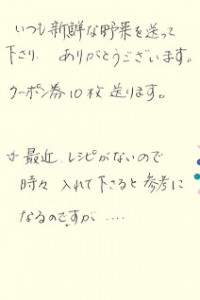 いつも新鮮な野菜を送って
下さり、ありがとうございます。
クーポン券10枚送ります。
☆最近、レシピがないので
時々入れて下さると参考に
なるのですが‥‥